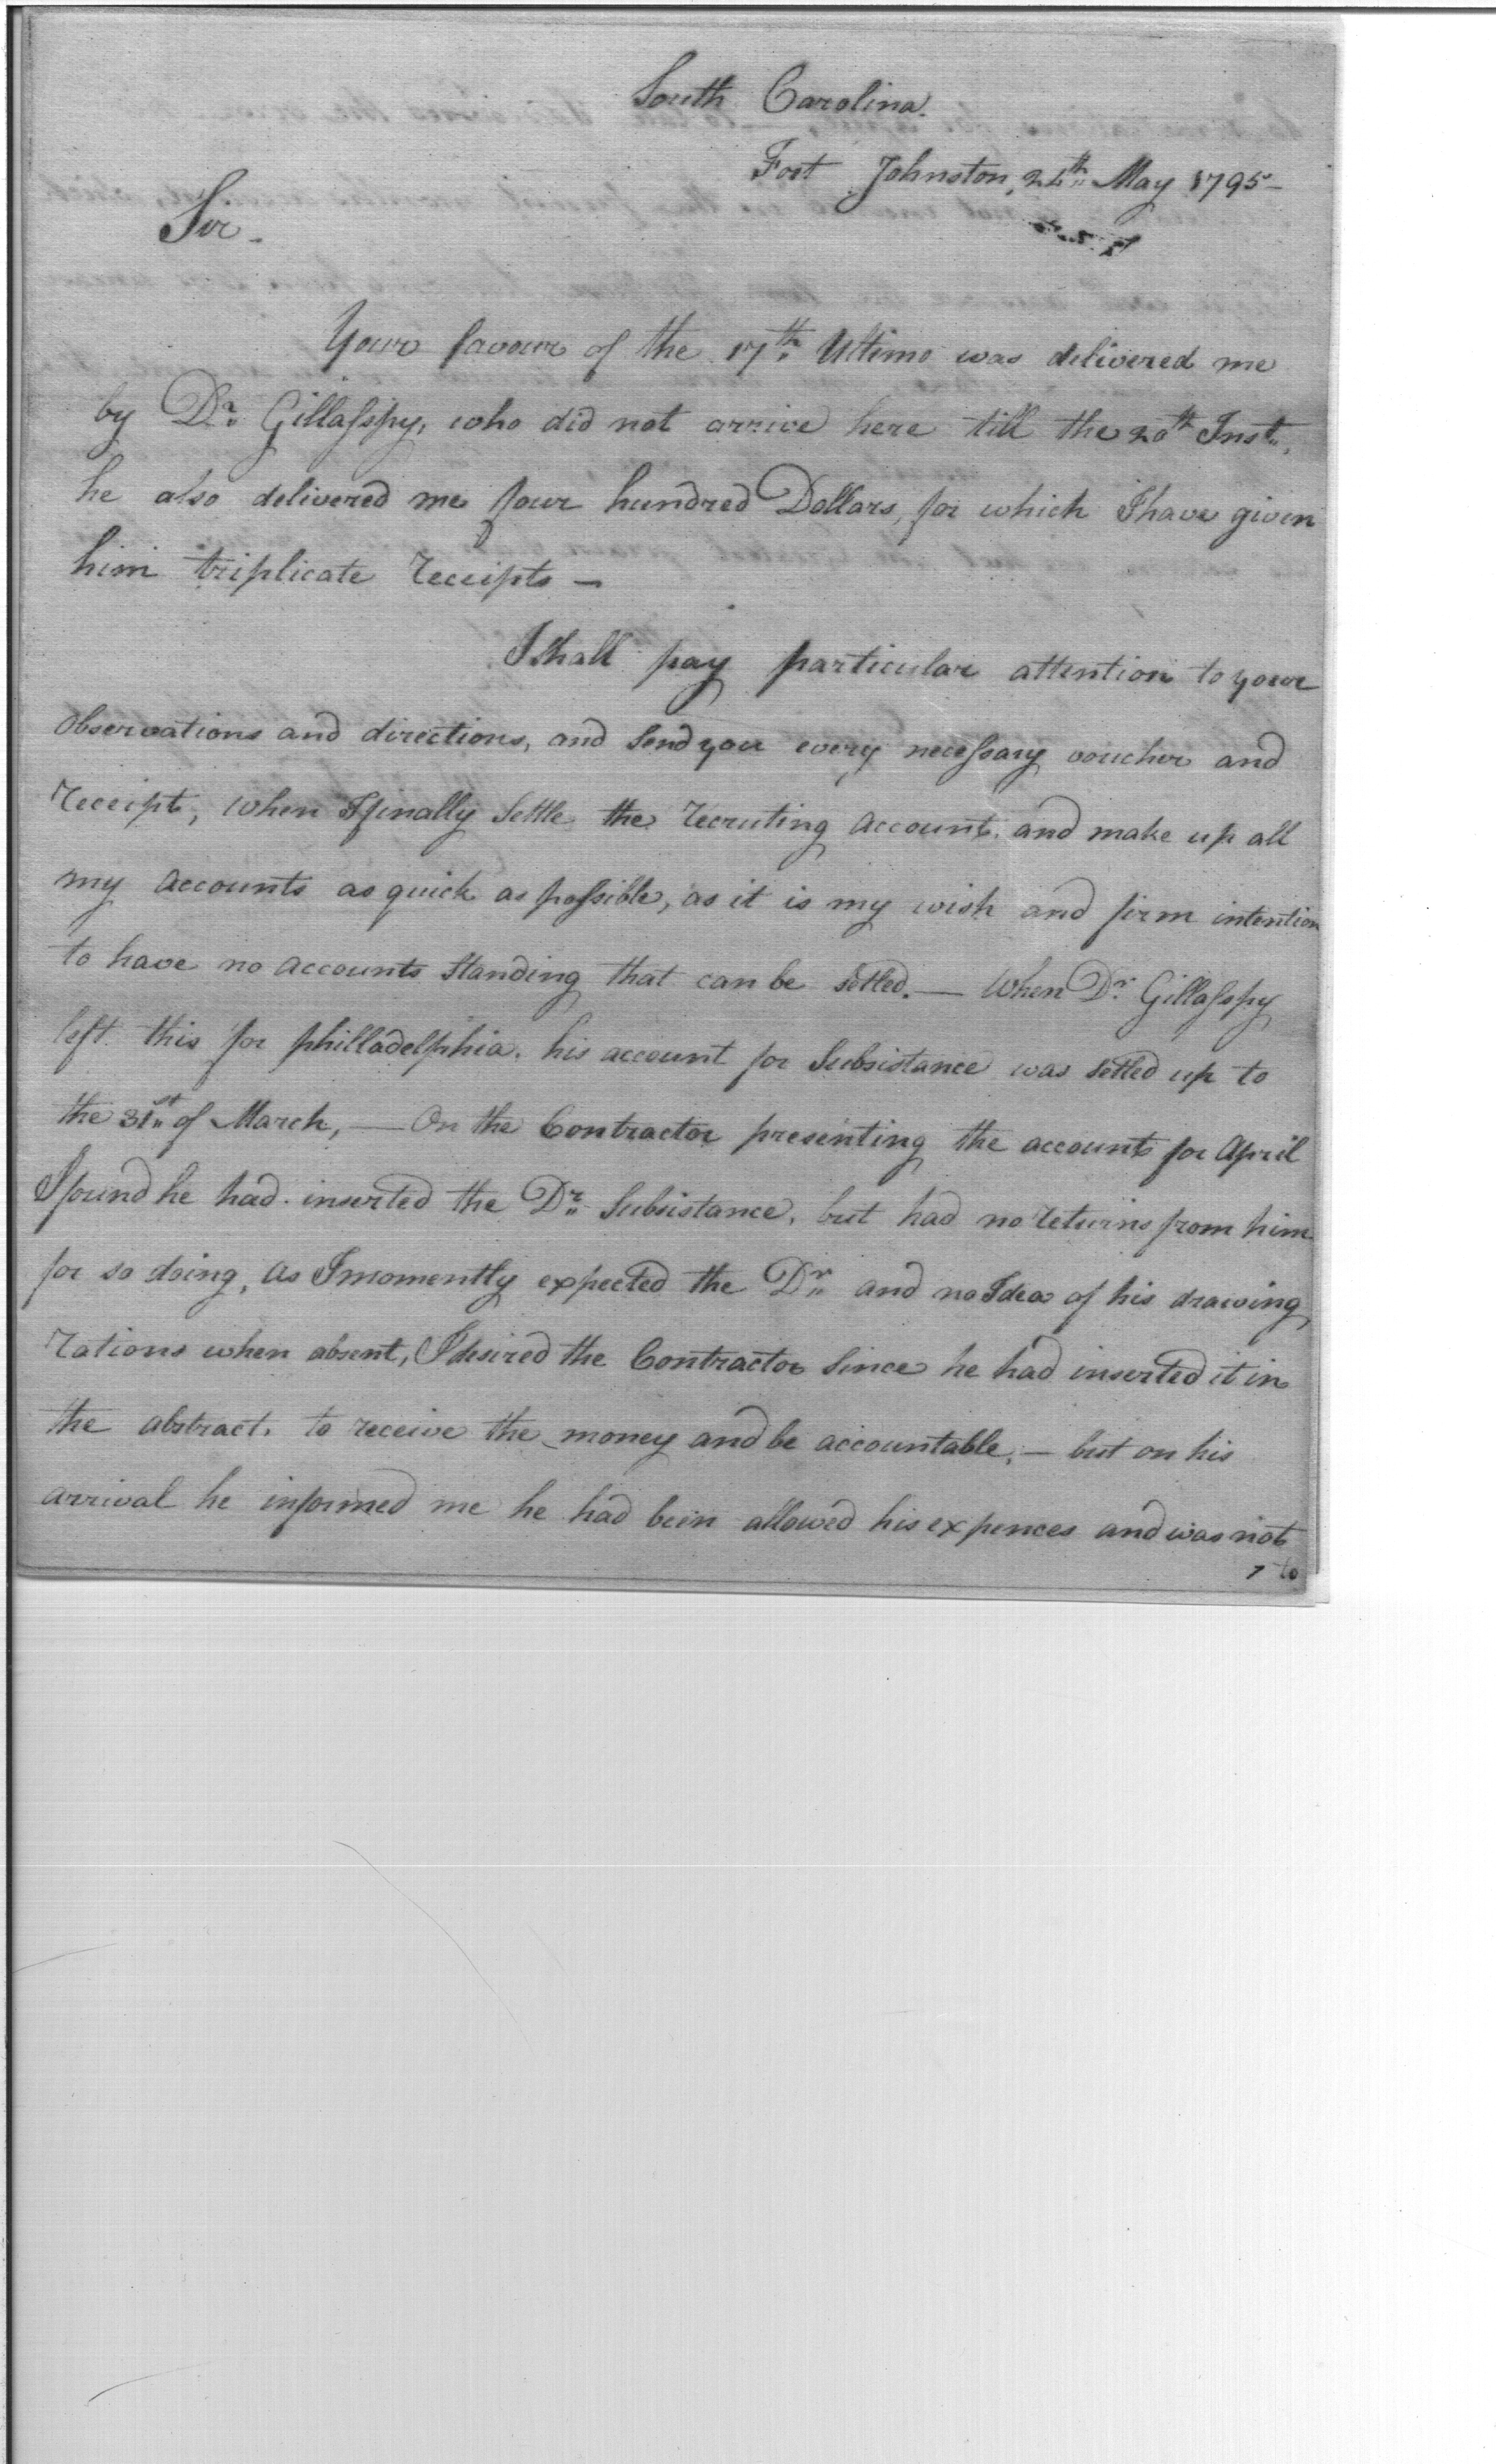 South Carolina.
Fort Johnston, 24th May 1795—
Sir—
Your favour of the 17th Ultimo was delivered me
by Dr. Gillasspy, who did not arrive here till the 20th Inst.,
he also delivered me four hundred Dollars, for which I have given
him triplicate receipts —
I shall pay particular attention to your
observations and directions, and send you every necessary voucher and
receipt, when I finally settle the recruting account. and make up all
my accounts as quick as possible, as it is my wish and firm intention
to have no accounts standing that can be setled. — When Dr. Gillasspy
left this for philladelphia. his account for Subsistance was setled up to
the 31st of March, — On the Contractor presenting the accounts for April
I found he had inserted the Dr. Subsistance, but had no returns from him
for so doing, as I momently expected the Dr. and no Idea of his drawing
rations when absent, I desired the Contractor since he had inserted it in
the abstract, to receive the money and be accountable, — but on his
arrival he informed me he had been allowed his expences and was not
to